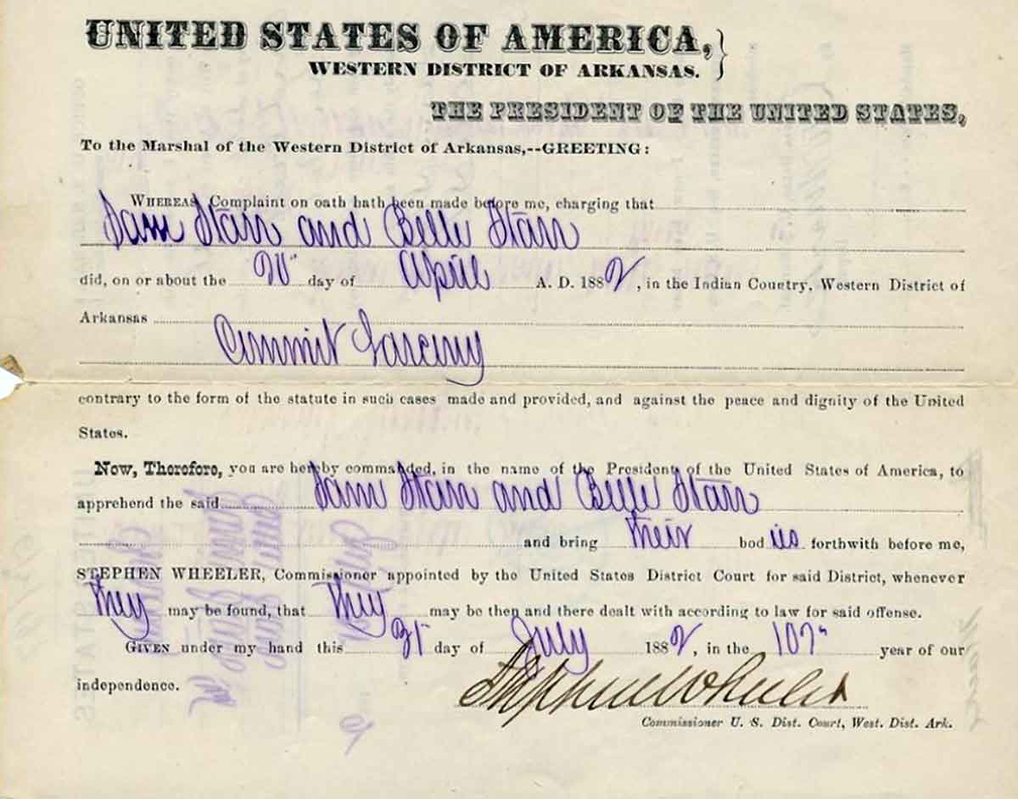 UNITED STATES OF AMERICA,
WESTERN DISTRICT OF ARKANSAS.
THE PRESIDENT OF THE UNITED STATES,
To the Marshal of the Western District of Arkansas,--GREETING:
WHEREAS, Complaint on oath hath been made before me, charging that
Sam Starr and Belle Starr
did, on or about the 20" day of April A. D. 1882, in the Indian Country, Western District of
Arkansas
Commit Larceny
contrary to the form of the statute in such cases made and provided, and against the peace and dignity of the United
States.
Now, Therefore, you are hereby commanded, in the name of the President of the United States of America, to
apprehend the said Sam Starr and Belle Starr
and bring their bodies forthwith before me,
STEPHEN WHEELER, Commissioner appointed by the United States District Court for said District, whenever
they may be found, that they may be then and there dealt with according to law for said offense.
GIVEN under my hand this 31" day of July 1882, in the 107" year of our
independence.
Stephen Wheeler
Commissioner U. S. Dist. Court, West. Dist. Ark.